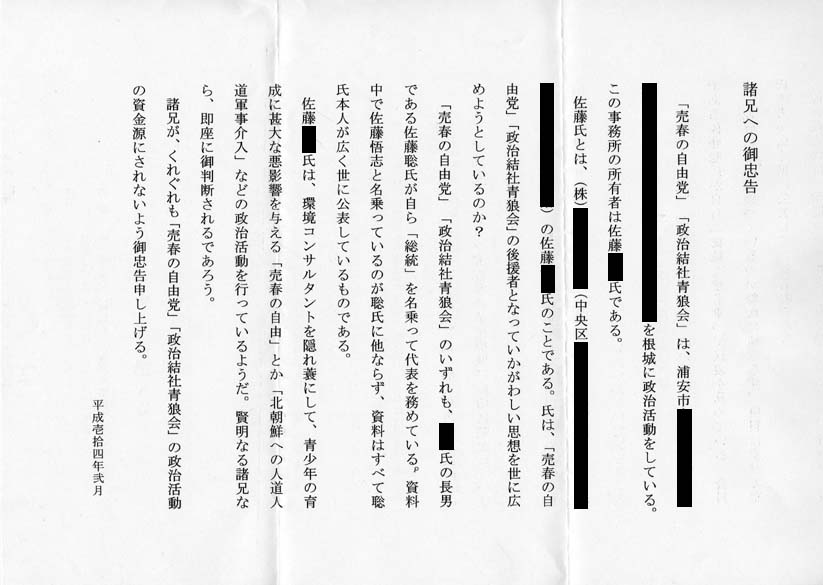 諸兄への御忠告
「売春の自由党」「政治結社青狼会」は、浦安市
を根城に政治活動をしている。
この事務所の所有者は佐藤 氏である。
佐藤氏とは、（株） （中央区
）の佐藤 氏のことである。氏は、「売春の自
由党」「政治結社青狼会」の後援者となっていかがわしい思想を世に広
めようとしているのか？
「売春の自由党」「政治結社青狼会」のいずれも、 氏の長男
である佐藤聡氏が自ら「総統」を名乗って代表を務めている。資料
中で佐藤悟志と名乗っているのが聡氏に他ならず、資料はすべて聡
氏本人が広く世に公表しているものである。
佐藤 氏は、環境コンサルタントを隠れ蓑にして、青少年の育
成に甚大な悪影響を与える「売春の自由」とか「北朝鮮への人道人
道軍事介入」などの政治活動を行っているようだ。賢明なる諸兄な
ら、即座に御判断されるであろう。
諸兄が、くれぐれも「売春の自由党」「政治結社青狼会」の政治活動
の資金源にされないよう御忠告申し上げる。
平成壱拾四年弐月